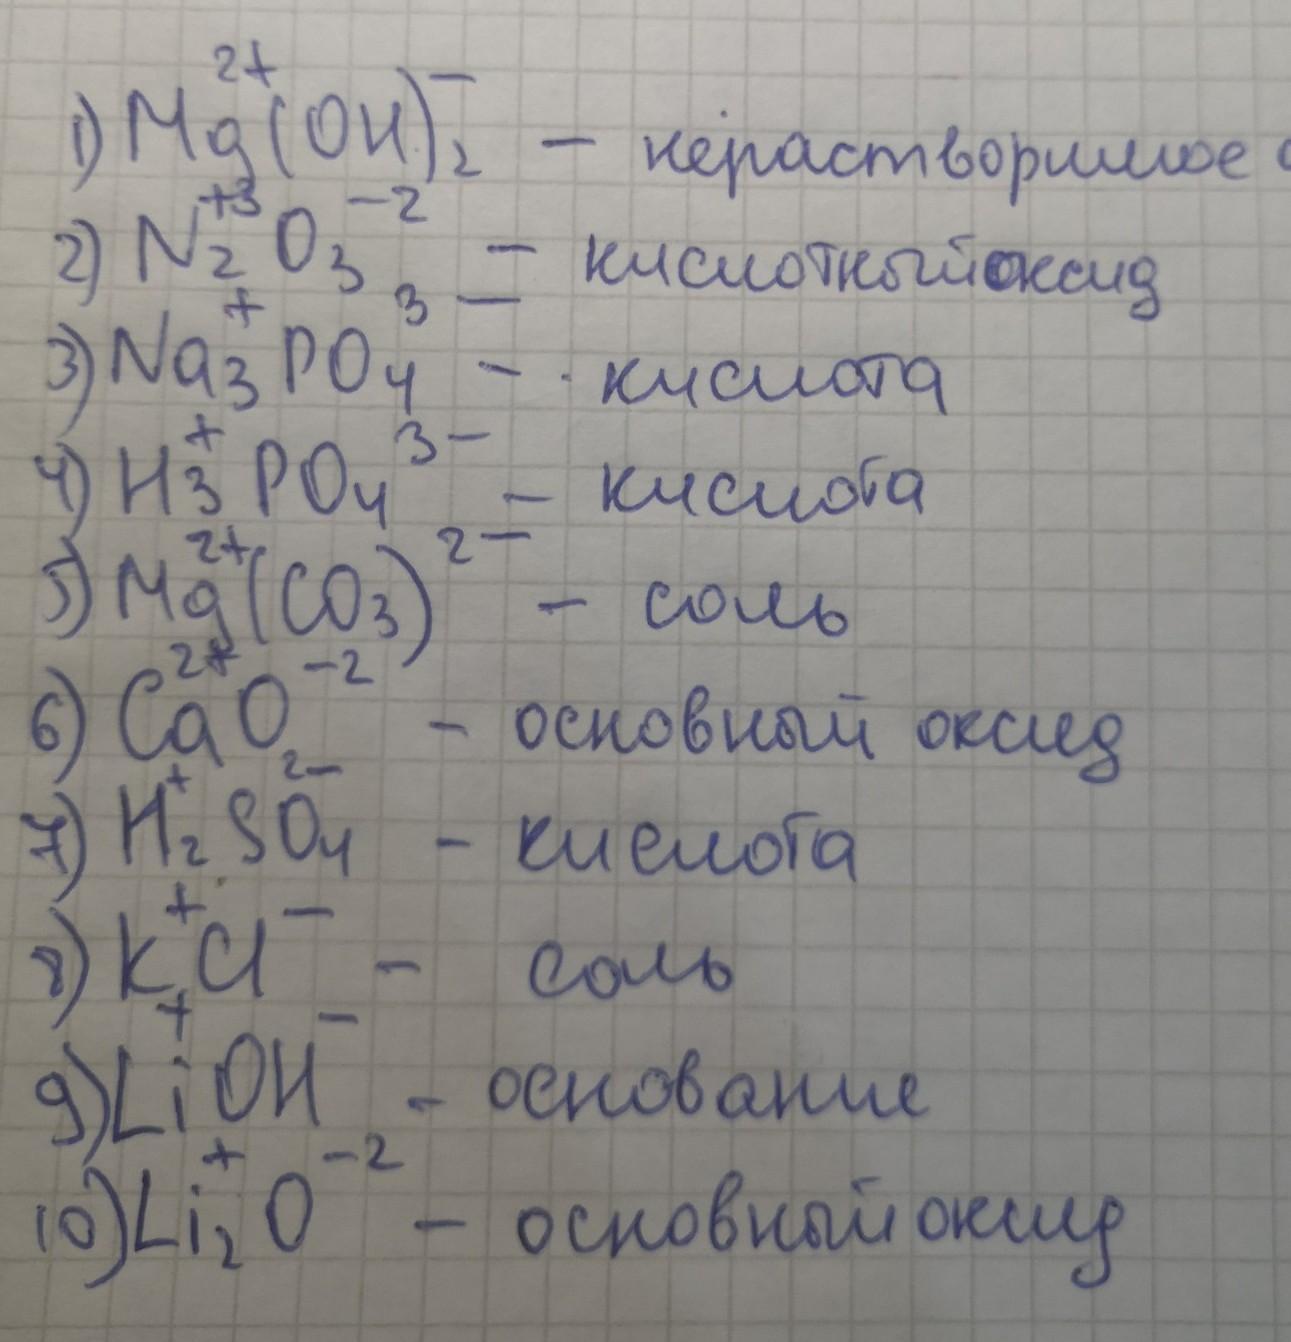 1) Mg²⁺(OH)₂⁻ – нерастворимое
2) N₂⁺³O₃⁻² – кислотный оксид
3) Na₃⁺PO₄³⁻ – кислота
4) H₃⁺PO₄³⁻ – кислота
5) Mg²⁺(CO₃)²⁻ – соль
6) Ca²⁺O⁻² – основный оксид
7) H₂⁺SO₄²⁻ – кислота
8) K⁺Cl⁻ – соль
9) Li⁺OH⁻ – основание
10) Li₂⁺O⁻² – основный оксид